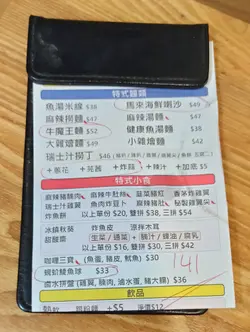 特式麵類
魚湯米線 $38 馬來海鮮喇沙 $49
麻辣撈麵 $47 麻辣湯麵 $47
牛魔王麵 $52 健康魚湯麵 $38
大雜燴麵 $49 小雜燴麵 $42
瑞士汁撈丁 $46
+葱花 +芫茜 +炸蒜 +辣汁 +加底 $5
特式小食
麻辣豬腩肉 麻辣牛肚 韭菜豬紅 香茅炸雞翼
瑞士汁雞翼 魚肉炸豆卜 麻辣豬肚 秘製雞尖
炸魚餅 以上單份 $20, 雙拼 $38, 三拼 $54
冰鎮秋葵 炸魚皮 涼拌木耳
甜酸齋 生菜 / 通菜 + 腸汁 / 蠔油 / 腐乳
以上單份 $16, 雙拼 $30, 三拼 $42
咖哩三寶 (魚蛋, 豬皮, 魷魚) $30
鹵水拼盤 (雞翼, 豬肉, 滷水蛋, 豬大腸) $36
$33
141
飲品
+$5 凍飲